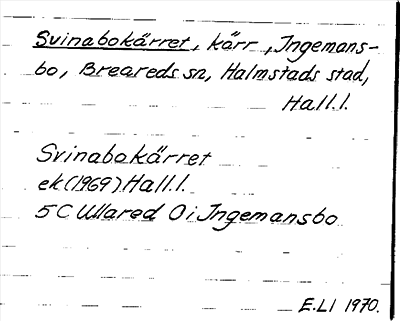 Svinabokärret, kärr, Ingemans-
bo, Breareds sn, Halmstads stad,
Hall.l.
Svinabokärret
ek (1969) Hall.l.
5C Ullared 0i Ingemansbo
E.LI 1970.